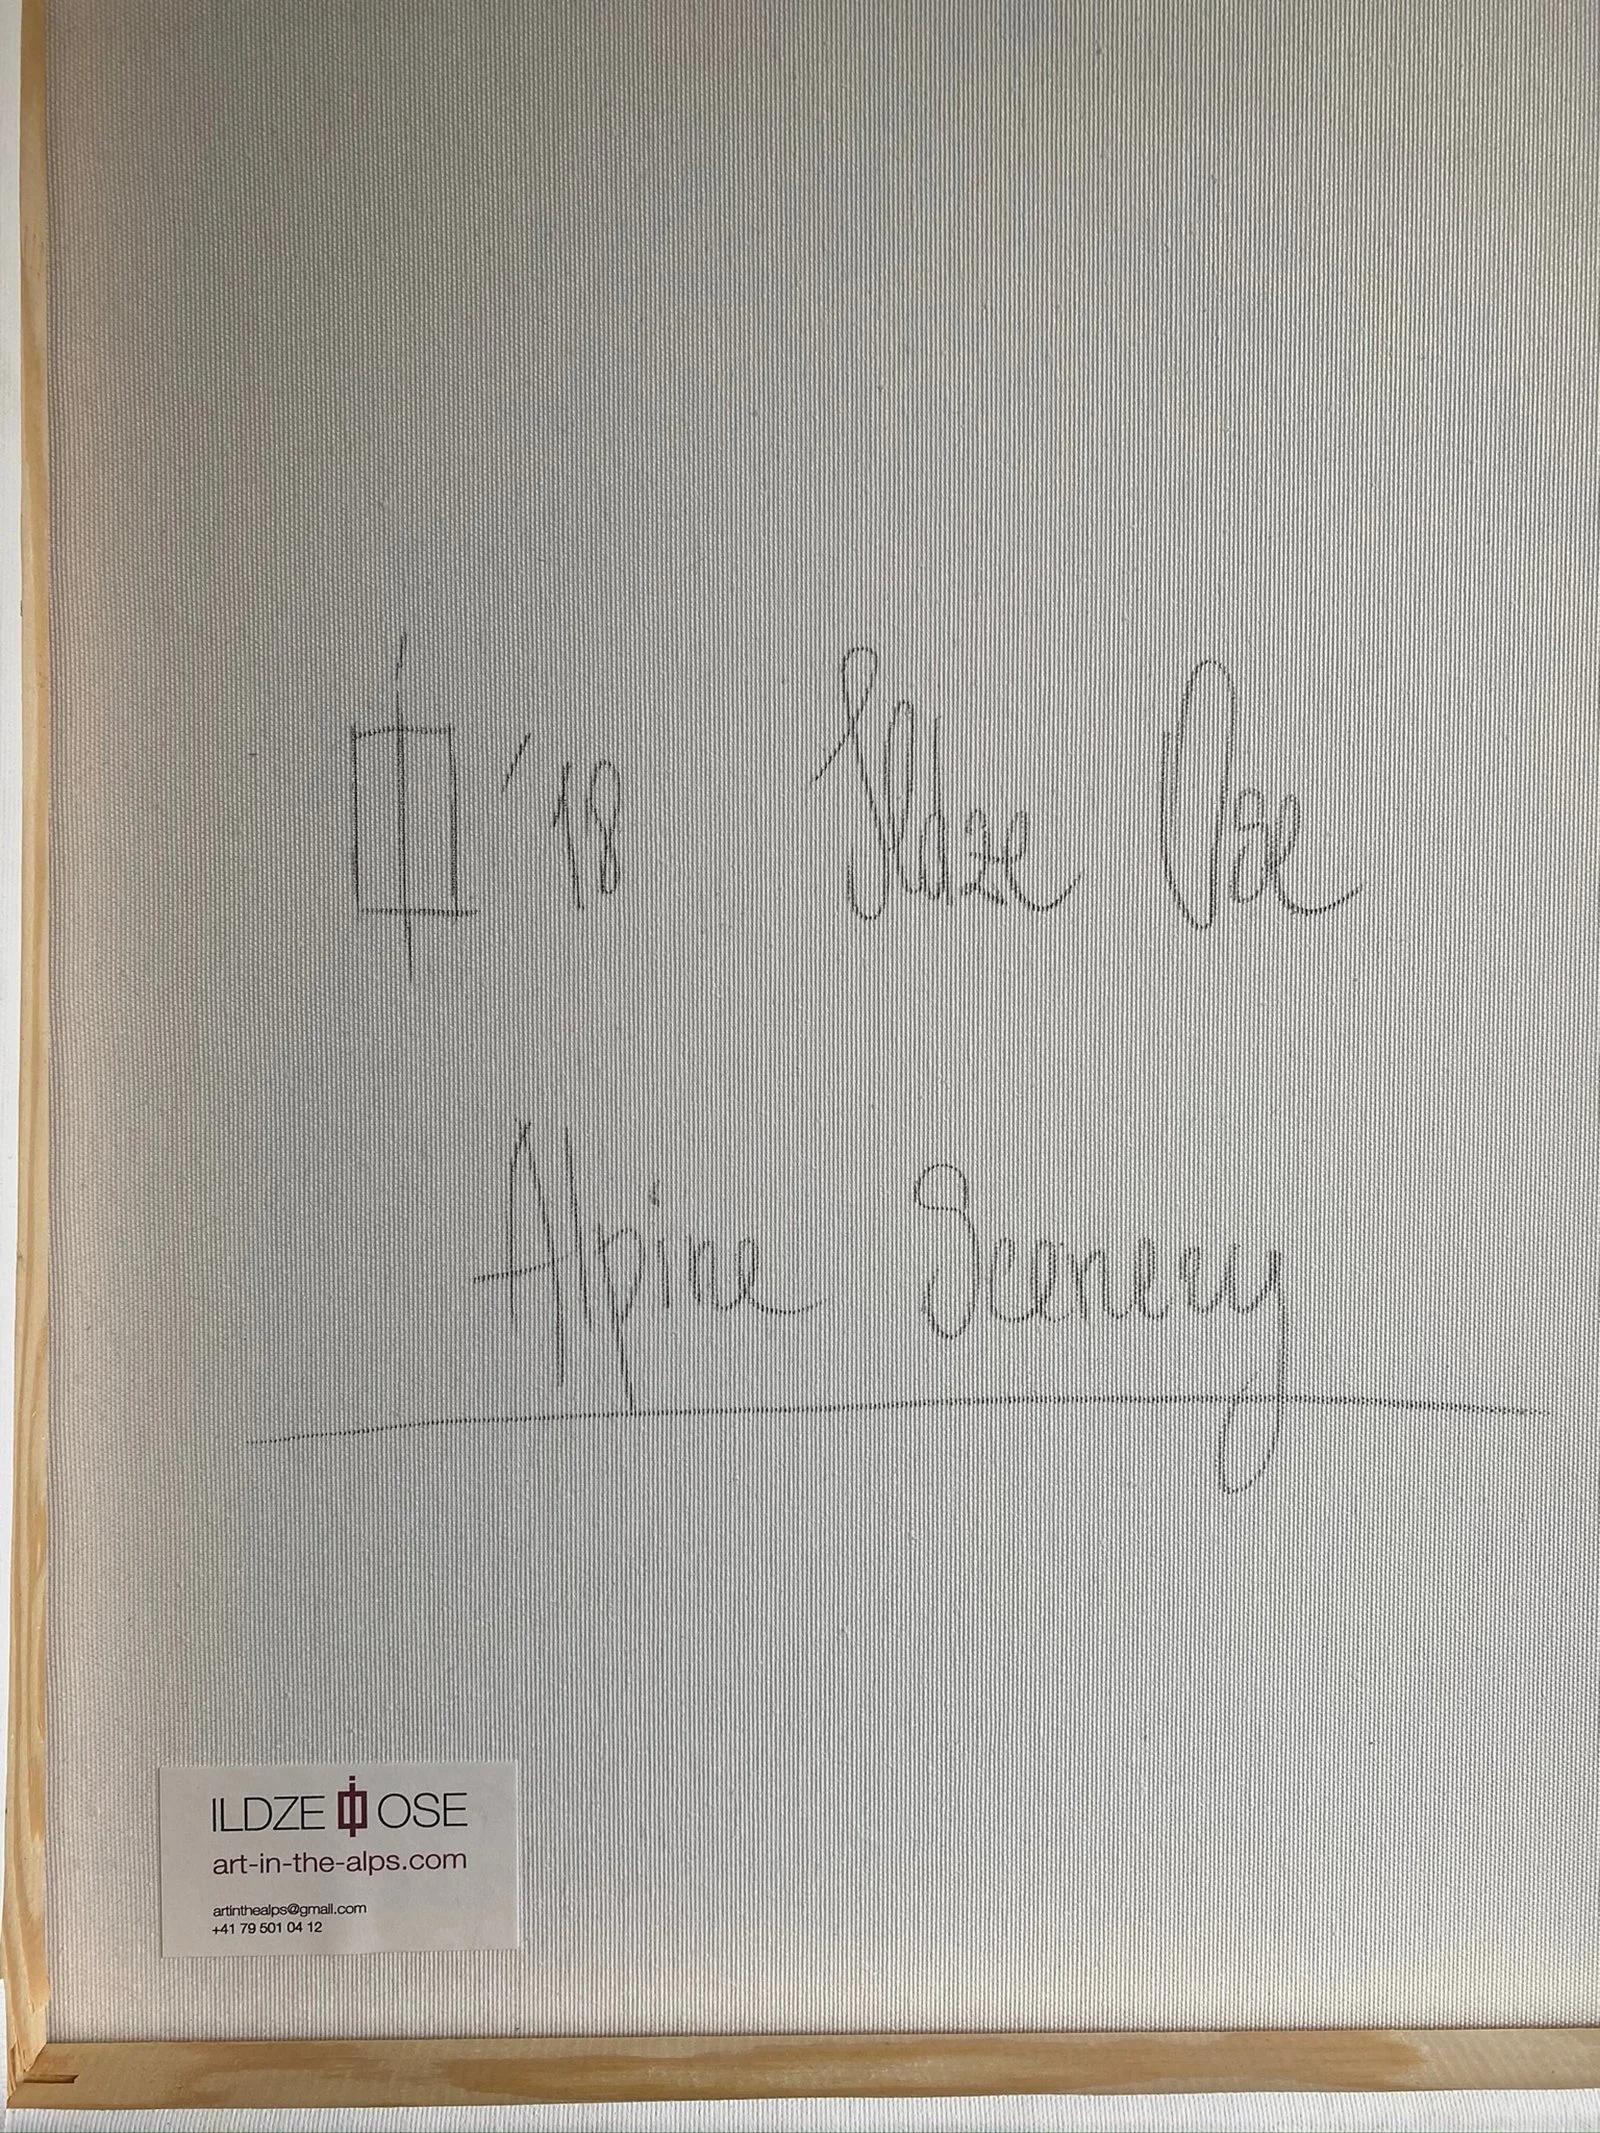 '18 Ildze Ose
Alpine Scenery
ILDZE OSE
art-in-the-alps.com
artinthealps@gmail.com
+41 79 501 04 12